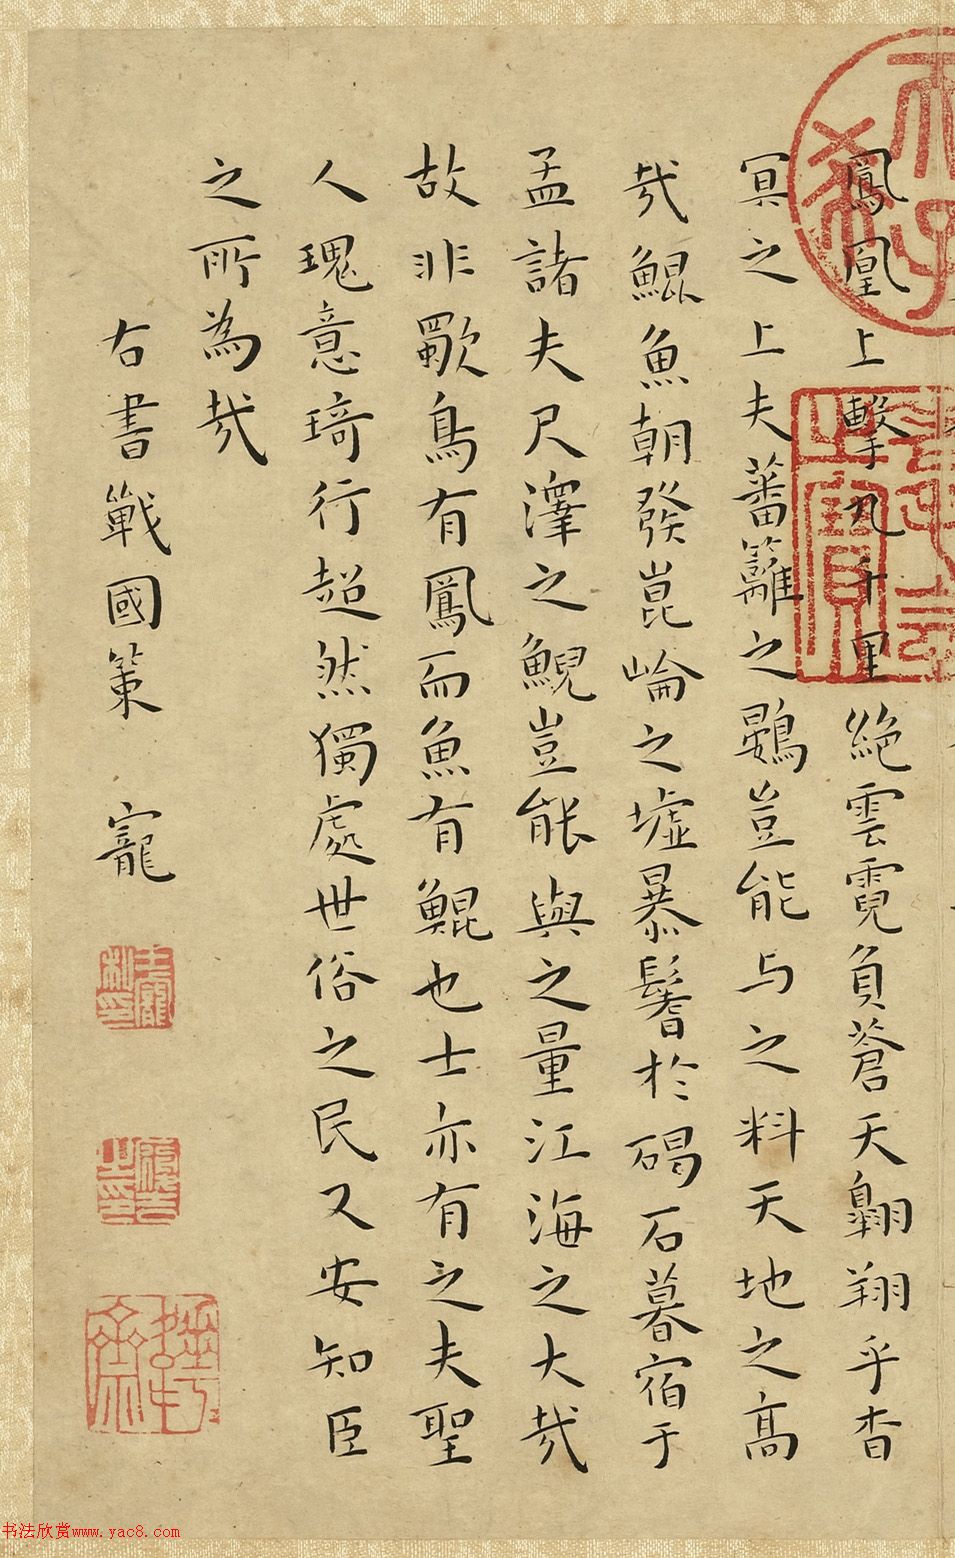 鳳凰上擊九千里絕雲霓負蒼天翱翔乎杳
冥之上夫蕃籬之鷃豈能与之料天地之高
哉鯤魚朝發崑崘之墟暴鬐於碣石暮宿于
孟諸夫尺澤之鯢豈能與之量江海之大哉
故非獨鳥有鳳而魚有鯤也士亦有之夫聖
人瑰意琦行超然獨處世俗之民又安知臣
之所為哉
右書戰國策 寵
王寵私印
書法欣賞www.yac8.com